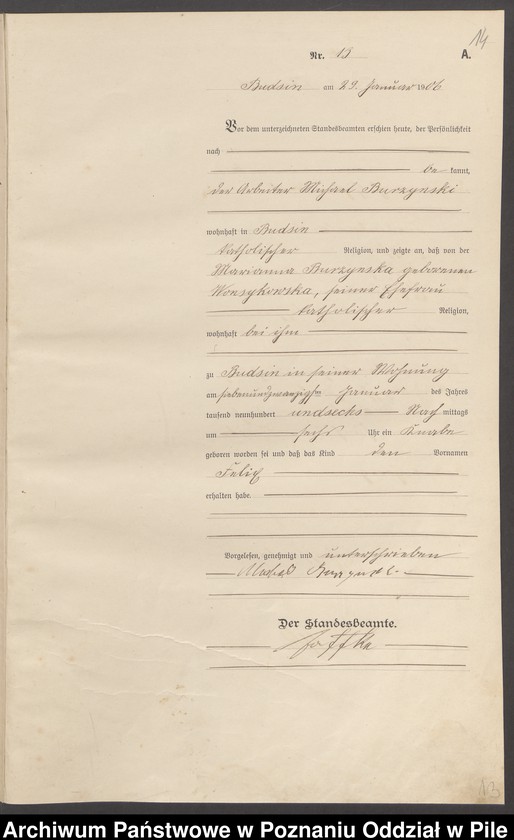 14
Nr. 13 A.
Budsin am 29. Januar 1906
Vor dem unterzeichneten Standesbeamten erschien heute, der Persönlichkeit
nach
be kannt,
der Arbeiter Michael Burzynski
wohnhaft in Budsin
katholischer Religion, und zeigte an, daß von der
Marianna Burzynska geborenen
Wonsykowska, seiner Ehefrau
katholischer Religion,
wohnhaft bei ihm
zu Budsin in seiner Wohnung
am siebenundzwanzigsten Januar des Jahres
tausend neunhundert undsechs Nach mittags
um sechs Uhr ein Knabe
geboren worden sei und daß das Kind den Vornamen
Felix
erhalten habe.
Vorgelesen, genehmigt und unterschrieben
Der Standesbeamte.
13
Archiwum Państwowe w Poznaniu Oddział w Pile